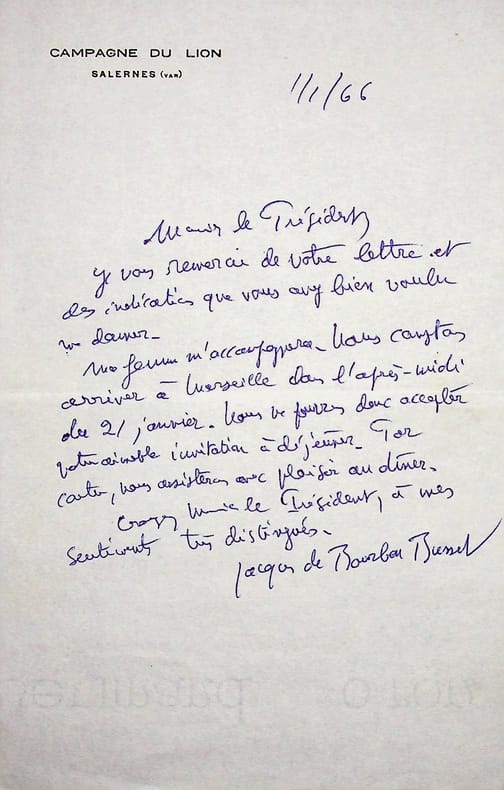 CAMPAGNE DU LION
SALERNES (VAR)
1/1/66
Monsieur le Président,
Je vous remercie de votre lettre et
des indications que vous avez bien voulu
me donner.
Ma femme m'accompagnera. Nous comptons
arriver à Marseille dans l'après-midi
du 21 janvier. Nous ne pourrons donc accepter
votre aimable invitation à déjeuner. Par
contre, nous assisterons avec plaisir au dîner.
Croyez, Monsieur le Président, à mes
sentiments très distingués.
Jacques de Bourbon Busset